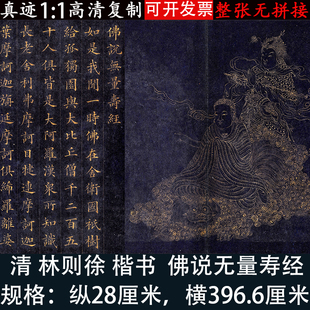 真迹1:1高清复制 可开发票 整张无拼接
佛說無量寿经
如是我聞一時佛在舍衛國祇樹
給孤獨園與大比丘僧千二百五
十人俱皆是大阿羅漢衆所知識
長老舍利弗摩訶目揵連摩訶
葉摩訶迦旃延摩訶俱絺羅離婆
清 林则徐 楷书 佛说无量寿经
规格：纵28厘米，横396.6厘米